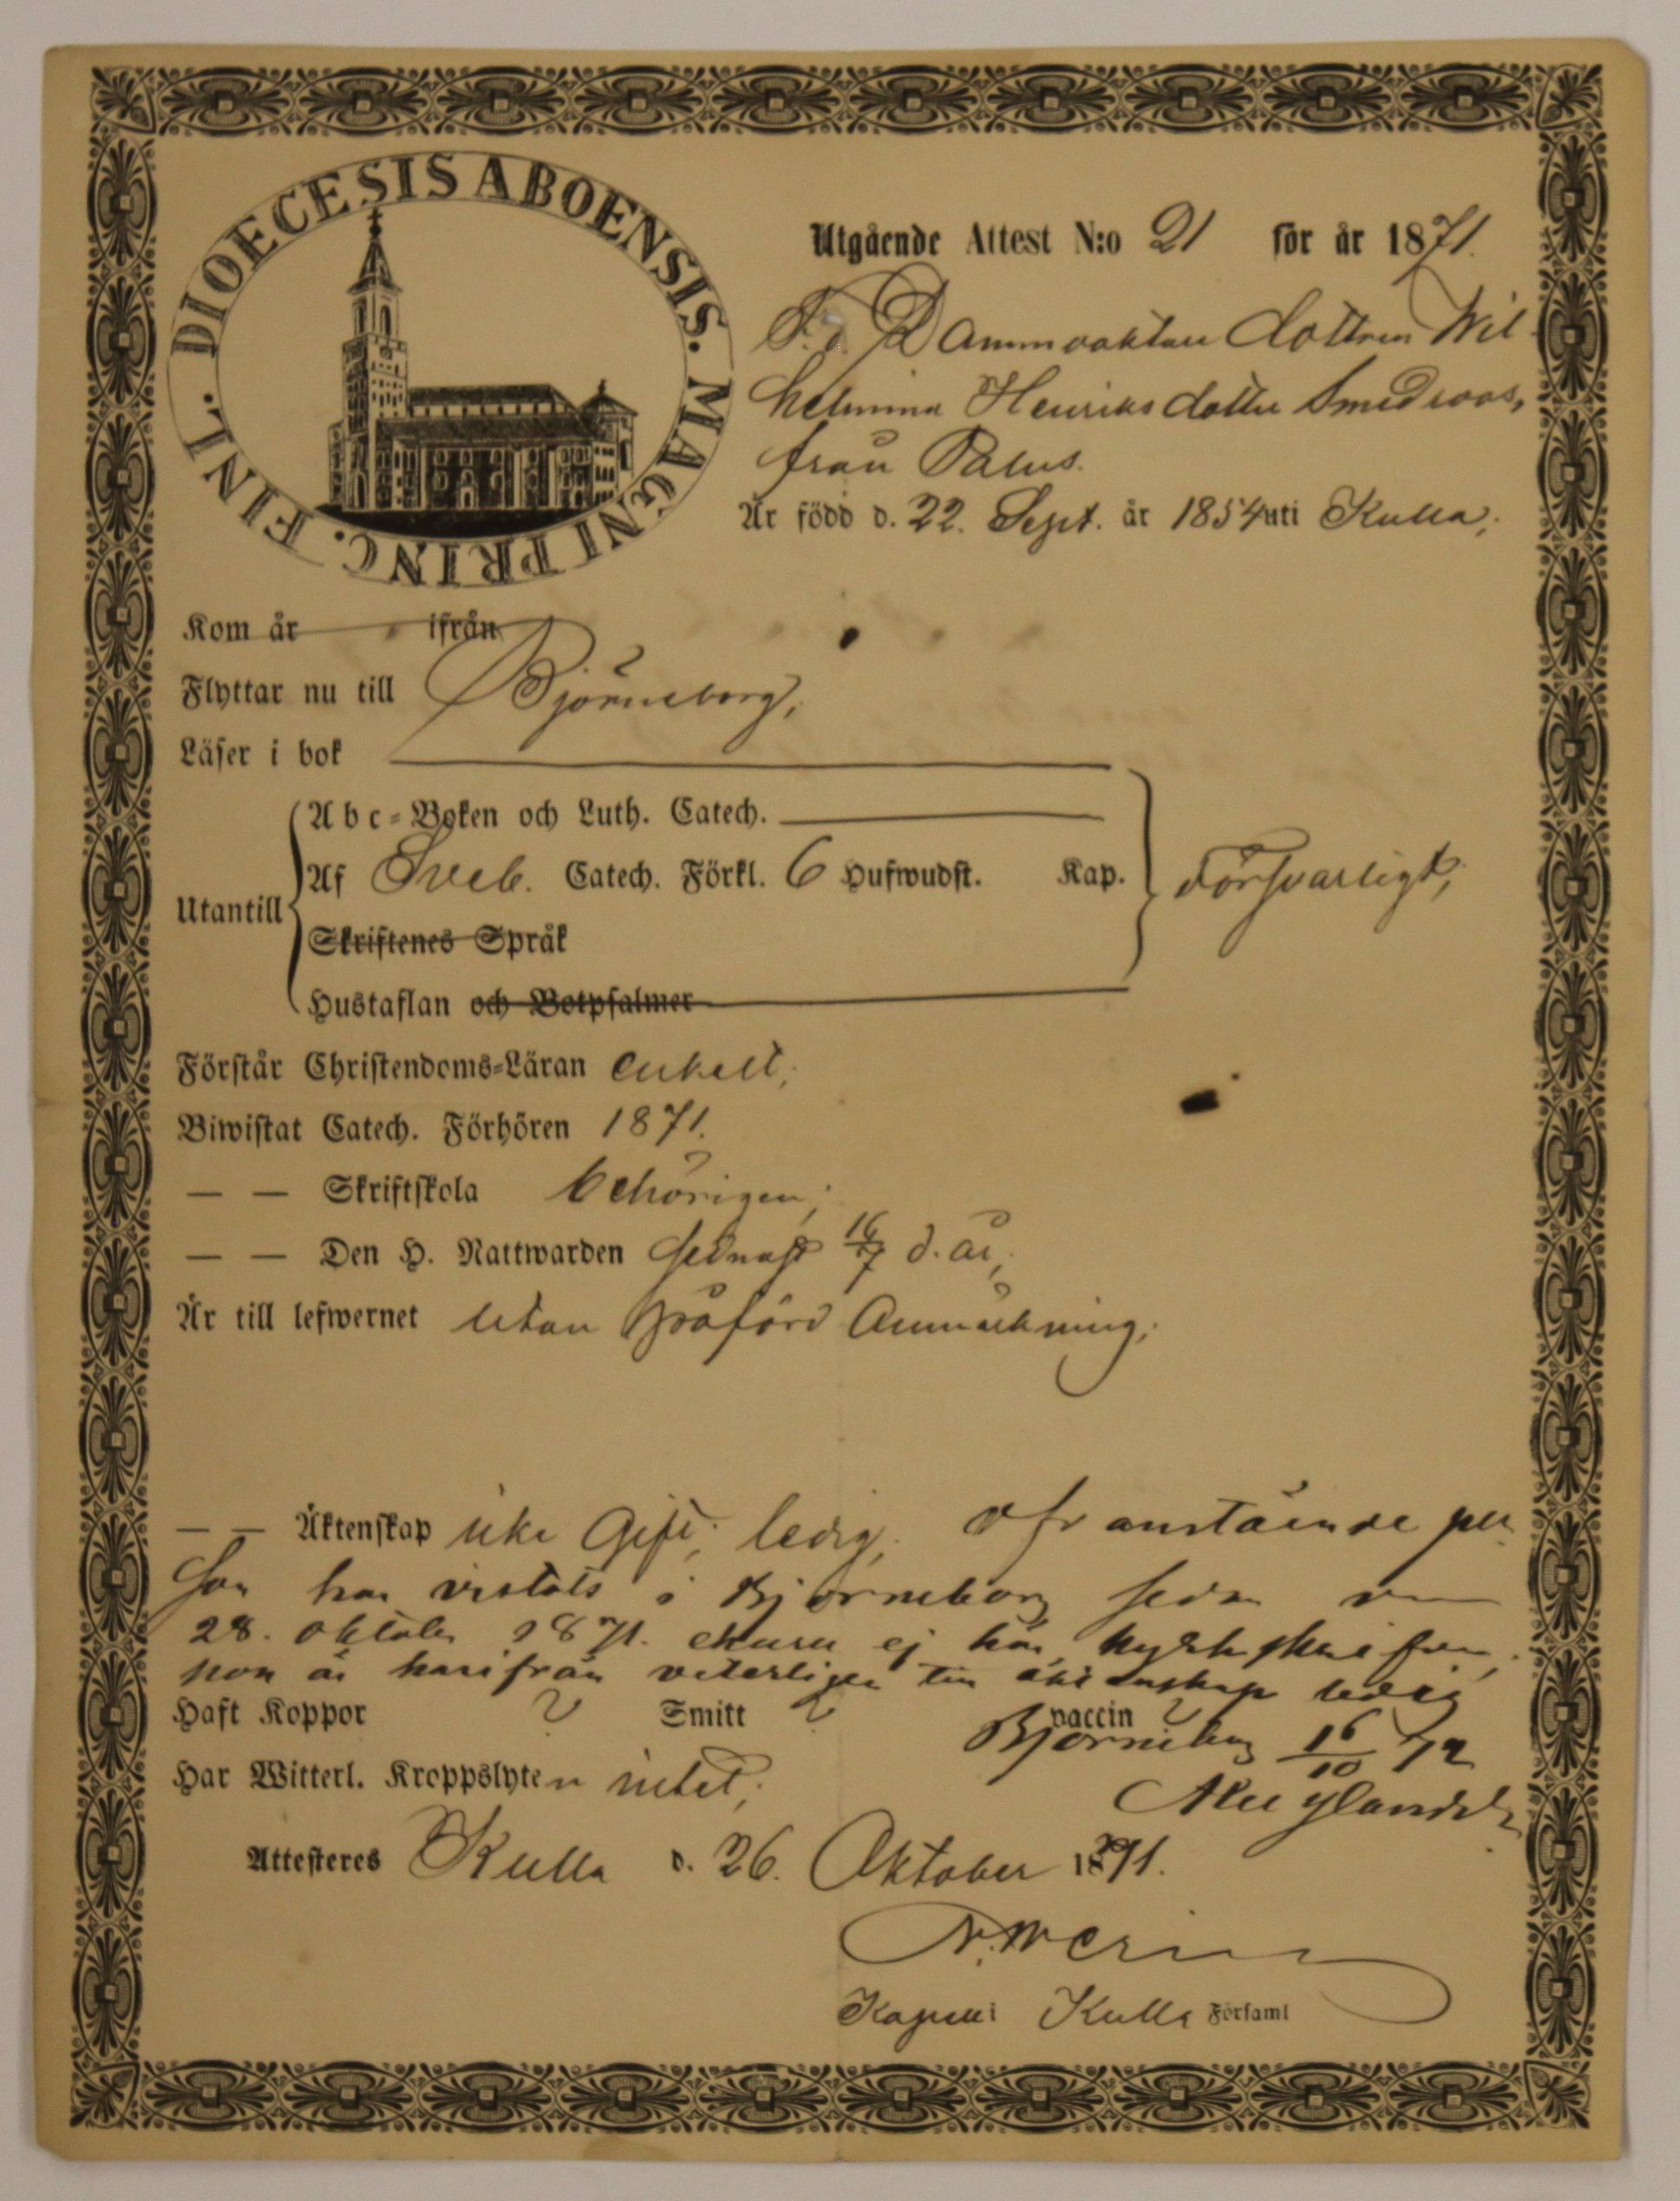 DIOECESIS ABOENSIS. MAGNI PRINC. FINL.
Utgående Attest N:o 21 för år 1871.
F. d. Dammvaktare dottren Wil-
helmina Henriksdotter Smedroos,
från Palus.
Är född d. 22. Sept. år 1854 uti Kulla;
Kom år ifrån
Flyttar nu till Björneborg;
Läser i bok
Utantill
Abc-Boken och Luth. Catech.
Af Sveb. Catech. Förkl. 6 Hufwudst. Kap. Försvarligt;
Skriftenes Språk
Hustaflan och Botpsalmer
Förstår Christendoms-Läran enkelt;
Biwistat Catech. Förhören 1871.
— — Skriftskola behörigen;
— — Den H. Nattwarden sednast 16/7 d. år;
Är till lefwernet utan påförd Anmärkning;
— — Äktenskap icke Gift, ledig; Ofvanstående per
son har vistats i Björneborg sedan
28. oktober 1871. ehuru ej här
hon är härifrån veterligen till äktenskap ledig
Haft Koppor ? Smitt ? vaccin ?
Björneborg 16/10 72
Har Witterl. Kroppslyten intet;
Attesteres Kulla d. 26. Oktober 1871.
Kapell i Kulla Församl